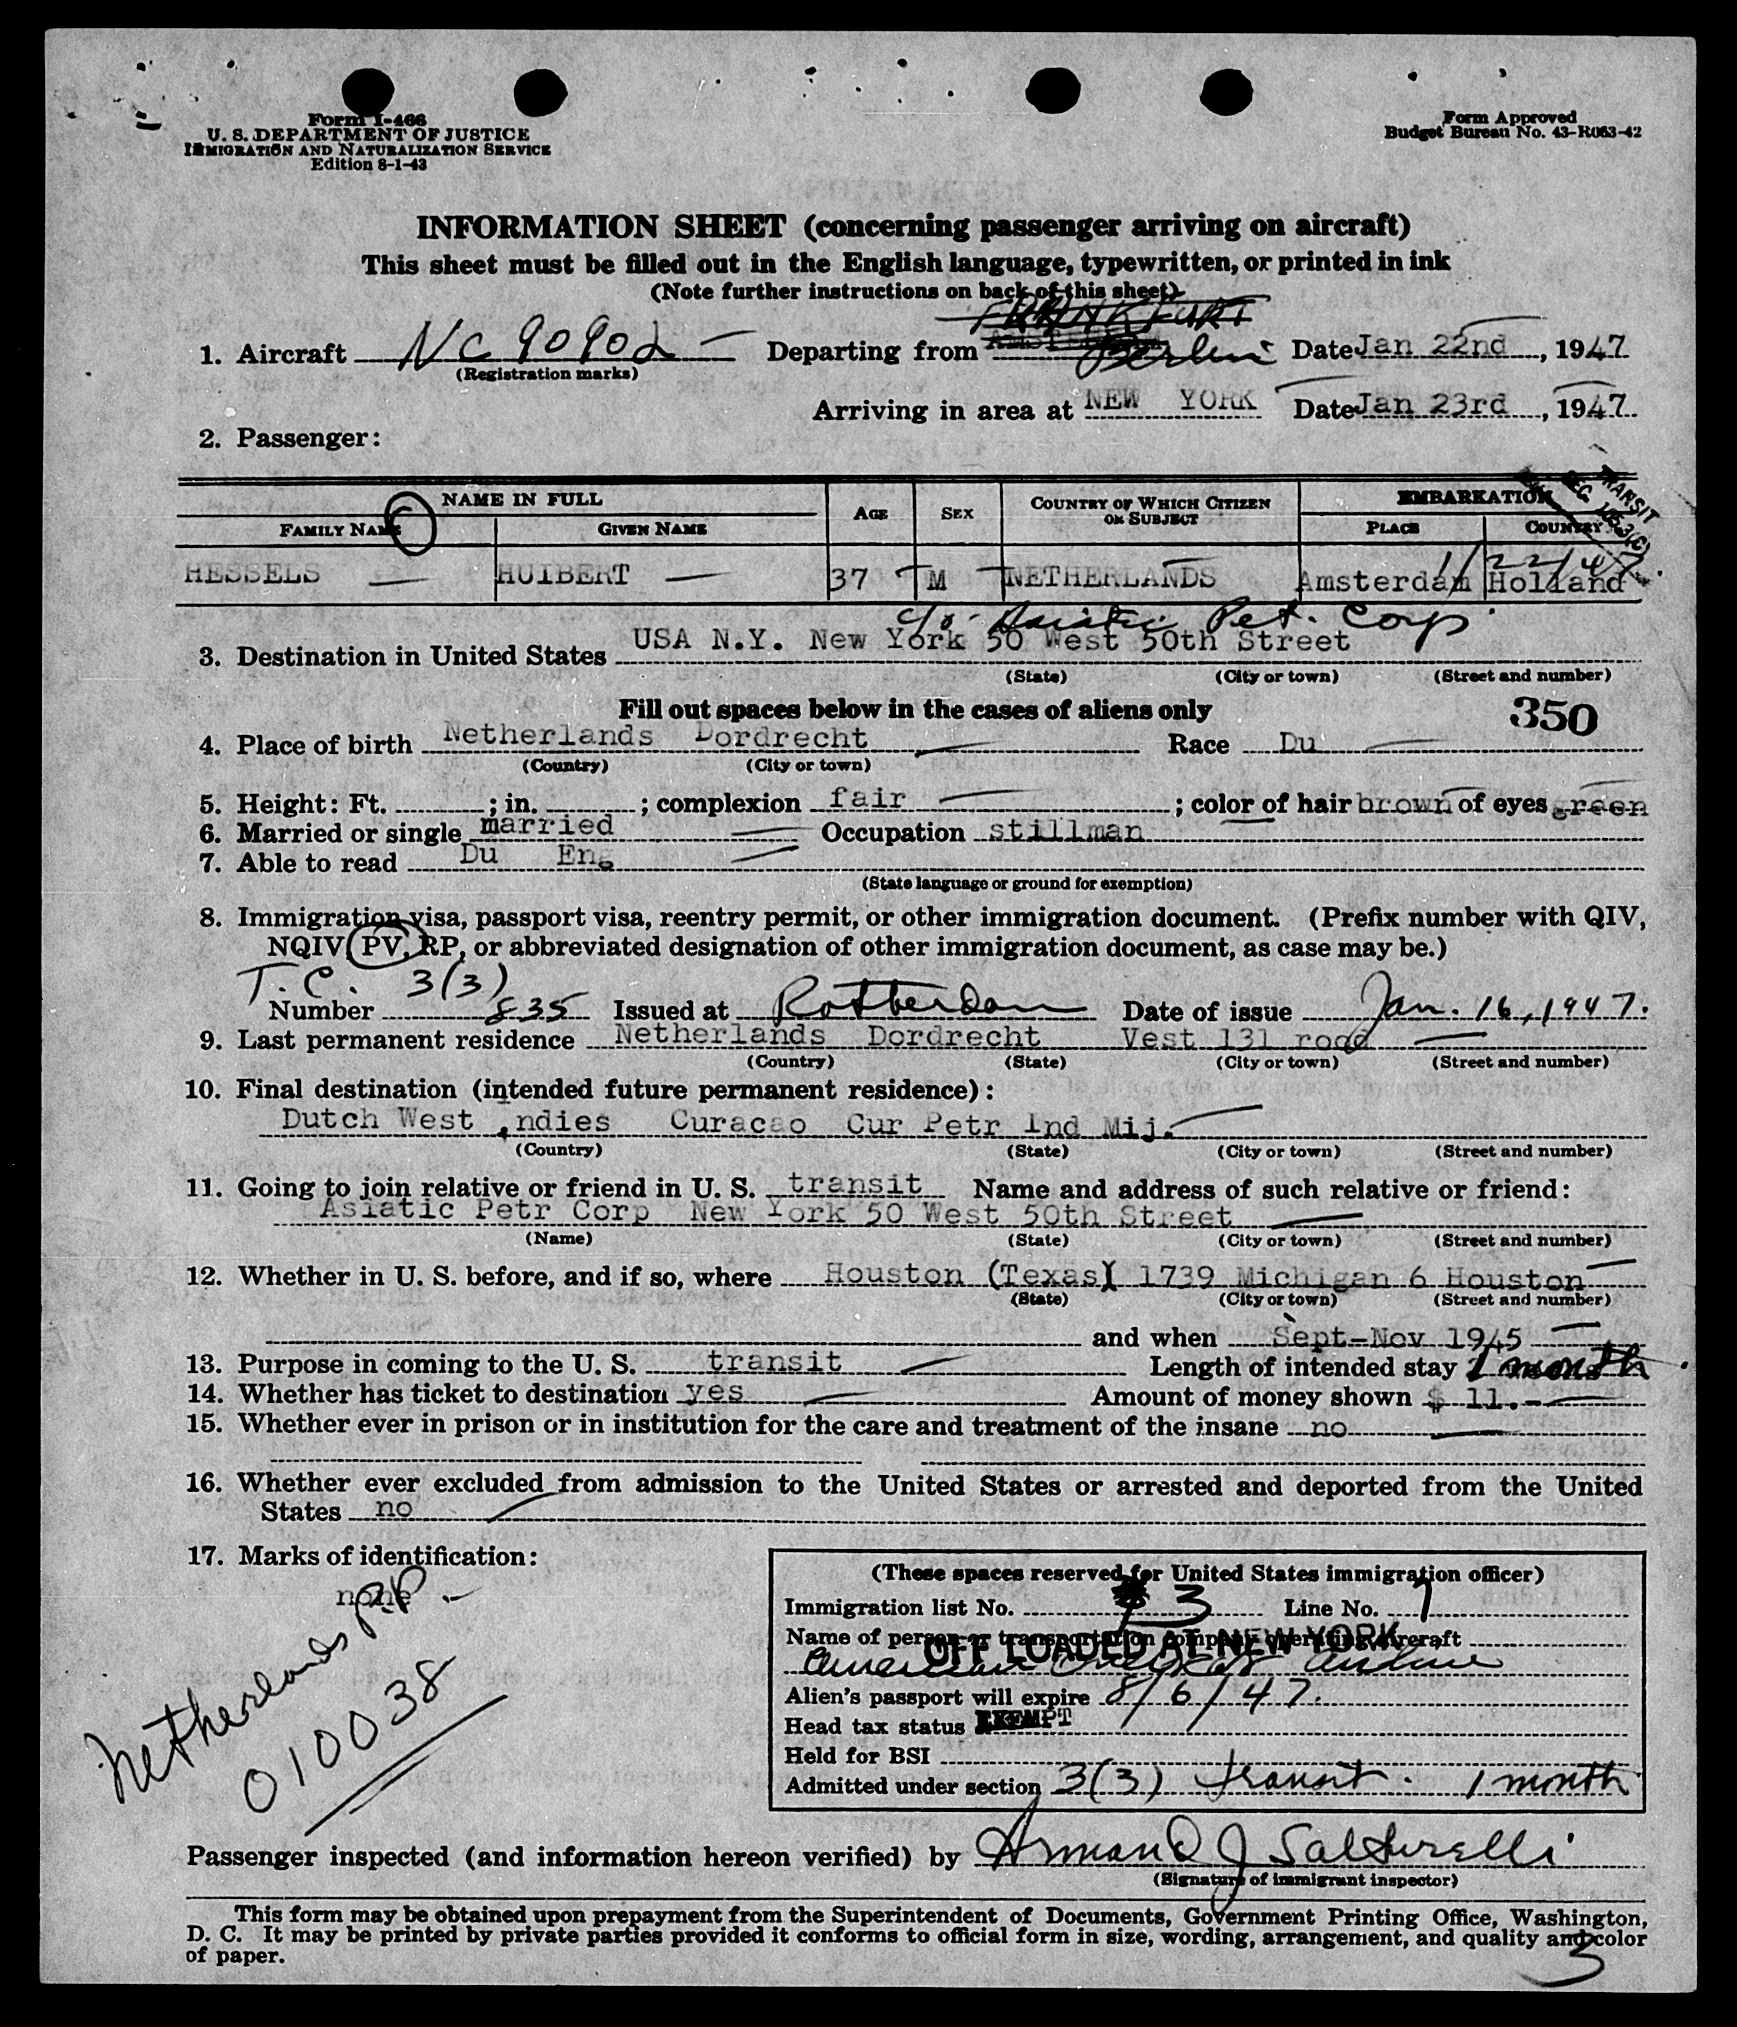 Form I-466
U. S. DEPARTMENT OF JUSTICE
IMMIGRATION AND NATURALIZATION SERVICE
Edition 8-1-43
Form Approved
Budget Bureau No. 43-R063-42
INFORMATION SHEET (concerning passenger arriving on aircraft)
This sheet must be filled out in the English language, typewritten, or printed in ink
(Note further instructions on back of this sheet)
FRANKFURT
1. Aircraft NC 90902 Departing from Amsterdam Berlin Date Jan 22nd, 1947
(Registration marks)
Arriving in area at NEW YORK Date Jan 23rd, 1947.
2. Passenger:
TRANSIT
NAME IN FULL AGE SEX COUNTRY OF WHICH CITIZEN OR SUBJECT EMBARKATION
FAMILY NAME GIVEN NAME PLACE COUNTRY
1/22/47.
HESSELS HUIBERT 37 M NETHERLANDS Amsterdam Holland
c/o Asiatic Pet. Corp.
3. Destination in United States USA N.Y. New York 50 West 50th Street
(State) (City or town) (Street and number)
Fill out spaces below in the cases of aliens only 350
4. Place of birth Netherlands Dordrecht Race Du
(Country) (City or town)
5. Height: Ft. ; in. ; complexion fair ; color of hair brown of eyes green
6. Married or single married Occupation stillman
7. Able to read Du Eng
(State language or ground for exemption)
8. Immigration visa, passport visa, reentry permit, or other immigration document. (Prefix number with QIV,
NQIV, PV, RP, or abbreviated designation of other immigration document, as case may be.)
T. C. 3(3)
Number 835 Issued at Rotterdam Date of issue Jan. 16, 1947.
9. Last permanent residence Netherlands Dordrecht Vest 131 rood
(Country) (State) (City or town) (Street and number)
10. Final destination (intended future permanent residence):
Dutch West Indies Curacao Cur Petr Ind Mij.
(Country) (State) (City or town) (Street and number)
11. Going to join relative or friend in U. S. transit Name and address of such relative or friend:
Asiatic Petr Corp New York 50 West 50th Street
(Name) (State) (City or town) (Street and number)
12. Whether in U. S. before, and if so, where Houston (Texas) 1739 Michigan 6 Houston
(State) (City or town) (Street and number)
and when Sept-Nov 1945
13. Purpose in coming to the U. S. transit Length of intended stay 1 month.
14. Whether has ticket to destination yes Amount of money shown $ 11.-
15. Whether ever in prison or in institution for the care and treatment of the insane no
16. Whether ever excluded from admission to the United States or arrested and deported from the United
States no
17. Marks of identification:
none
Netherlands P.P.
010038
(These spaces reserved for United States immigration officer)
Immigration list No. 3 Line No. 7
Name of person or transportation company operating aircraft
OFF LOADED AT NEW YORK
American Overseas Airline
Alien's passport will expire 8/6/47.
Head tax status EXEMPT
Held for BSI
Admitted under section 3(3) transit. 1 month
Passenger inspected (and information hereon verified) by Armand J Salturelli
(Signature of immigrant inspector)
This form may be obtained upon prepayment from the Superintendent of Documents, Government Printing Office, Washington,
D. C. It may be printed by private parties provided it conforms to official form in size, wording, arrangement, and quality and color
of paper.
3